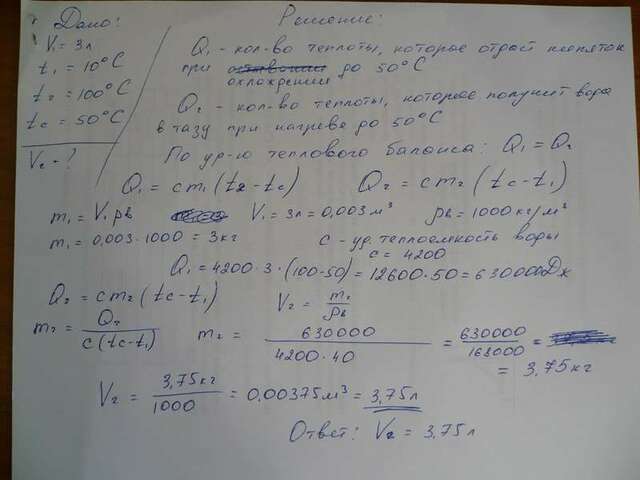 Дано:
V₁ = 3л
t₁ = 10°C
t₂ = 100°C
tc = 50°C
V₂ - ?
Решение:
Q₁ - кол-во теплоты, которое отдаст кипяток
при охлаждении до 50°C
Q₂ - кол-во теплоты, которое получит вода
в тазу при нагреве до 50°C
По ур-ю теплового баланса: Q₁ = Q₂
Q₁ = cm₁(t₂ - tc) Q₂ = cm₂(tc - t₁)
m₁ = V₁ρв V₁ = 3л = 0,003м³ ρв = 1000кг/м³
m₁ = 0,003·1000 = 3кг c - уд. теплоемкость воды
c = 4200
Q₁ = 4200·3·(100-50) = 12600·50 = 630000Дж
Q₂ = cm₂(tc - t₁) V₂ = m₂/ρв
m₂ = Q₂/c(tc - t₁) m₂ = 630000/4200·40 = 630000/168000 =
= 3,75кг
V₂ = 3,75кг/1000 = 0,00375м³ = 3,75л
Ответ: V₂ = 3,75л